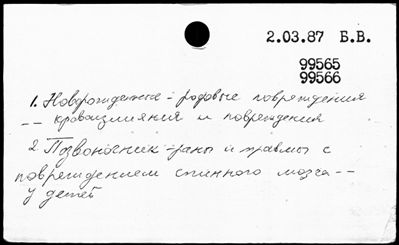 2.03.87 Б.В.
99565
99566
1. Новорожденные - родовые повреждения
-- кровоизлияния и повреждения
2 Позвоночник - раны и травмы с
повреждением спинного мозга --
у детей